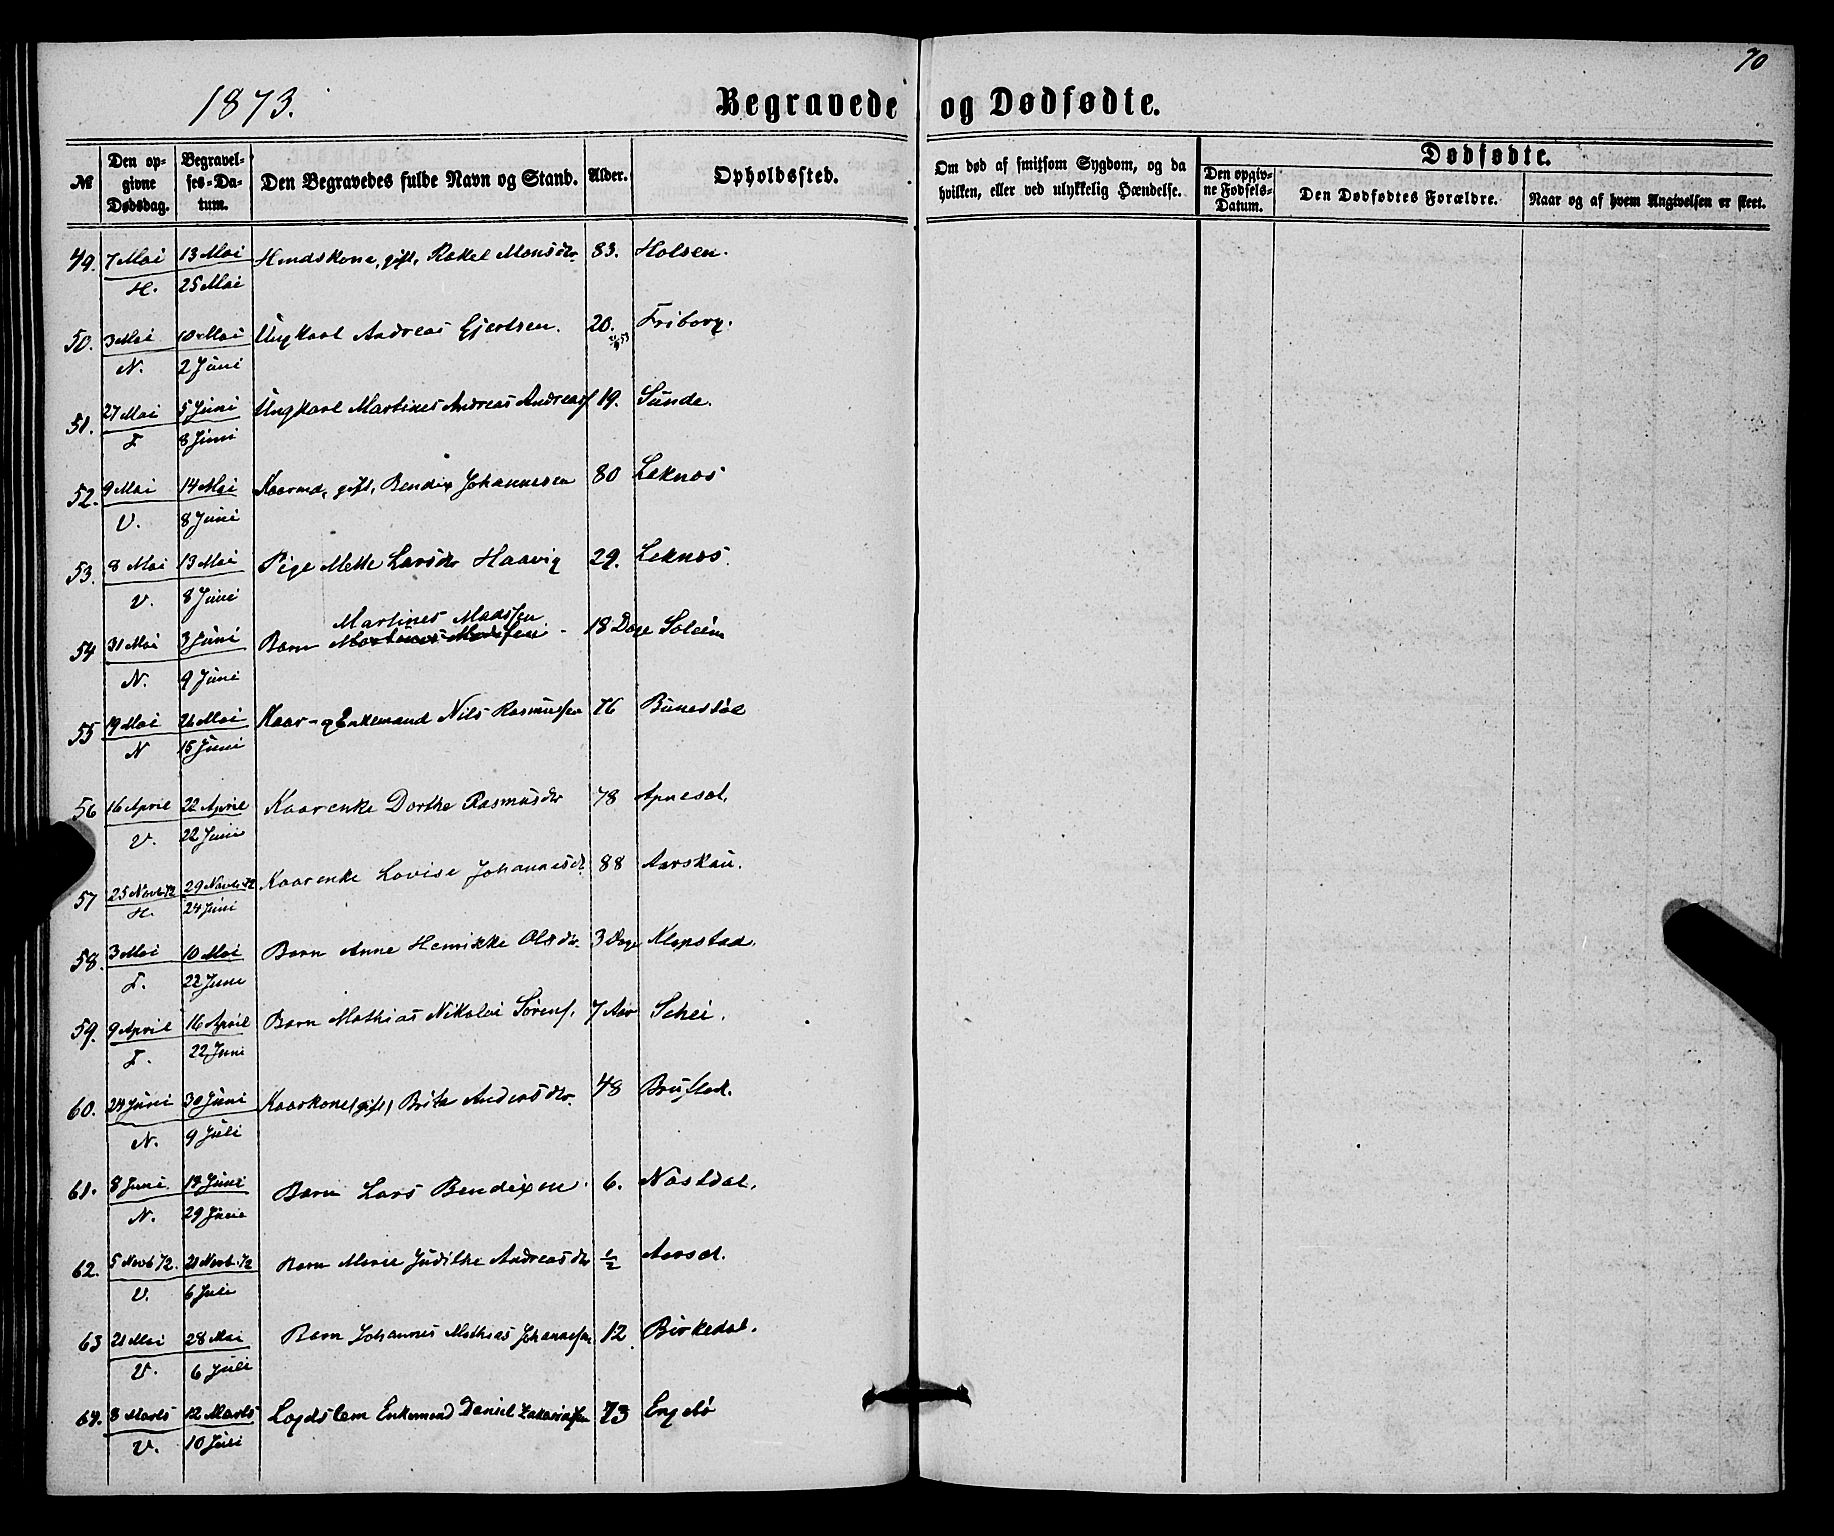 70
1873.
Begravede og Dødfødte.
№
Den opgivne Dødsdag.
Begravelses-Datum.
Den Begravedes fulde Navn og Stand.
Alder.
Opholdssted.
Om død af smitsom Sygdom, og da hvilken, eller ved ulykkelig Hændelse.
Dødfødte.
Den opgivne Fødsels-Datum.
Den Dødfødtes Forældre.
Naar og af hvem Angivelsen er skeet.
49. 7 Mai 13 Mai gift, Rakel Monsdr. 83. Holsen.
H. 25 Mai
50. 3 Mai 10 Mai Ungkarl Andreas Ejertsen. 20. Friborg.
N. 2 Juni
51. 27 Mai 5 Juni Ungkarl Martines Andreas Andreasf 19. Sunde.
F 8 Juni
52. 9 Mai 14 Mai Kaarmd, gift, Bendix Johannesen 80 Leknes
V. 8 Juni
53. 8 Mai 13 Mai Pige Mette Larsdr Haavig 29. Leknes.
V. 8 Juni
Martines Madssen
54 31 Mai 3 Juni Barn 18 Dage Soleim
N. 9 Juni
55 19 Mai 26 Mai Kaar- og Enkemand Nils Rasmussen 76 Bunestød
N 15 Juni
56 16 April 22 April Kaarenke Dorthe Rasmusdr 78 Apnesel.
V. 22 Juni
57 25 Novb 72 29 Novbr 72 Kaarenke Lovise Johannesdr. 88 Aarskau.
H. 24 Juni
58. 3 Mai 10 Mai Barn Anne Henrikke Olsdr. 3 Dage Klopstad.
F. 22 Juni
59. 9 April 16 April Barn Mathias Nikolai Sørens. 7 Aar Schei.
F. 22 Juni
60. 24 Juni 30 Juni Kaarkone (gift) Brite Andersdr. 48 Brustad.
N. 9 Juli
61. 8 Juni 14 Juni Barn Lars Bendixen. 6. Nastdal.
N. 29 Juni
62. 5 Novb 72. 21 Novb. 72 Barn Marie Judithe Andreasdr ½ Aarsel.
V. 6 Juli
63 21 Mai 28 Mai Barn Johannes Mathias Johannessen 12 Birkedal.
V. 6 Juli
64. 8 Marts 12 Marts Lægdslem Enkemand Daniel Zakariassen 73 Engebø
V. 10 Juli